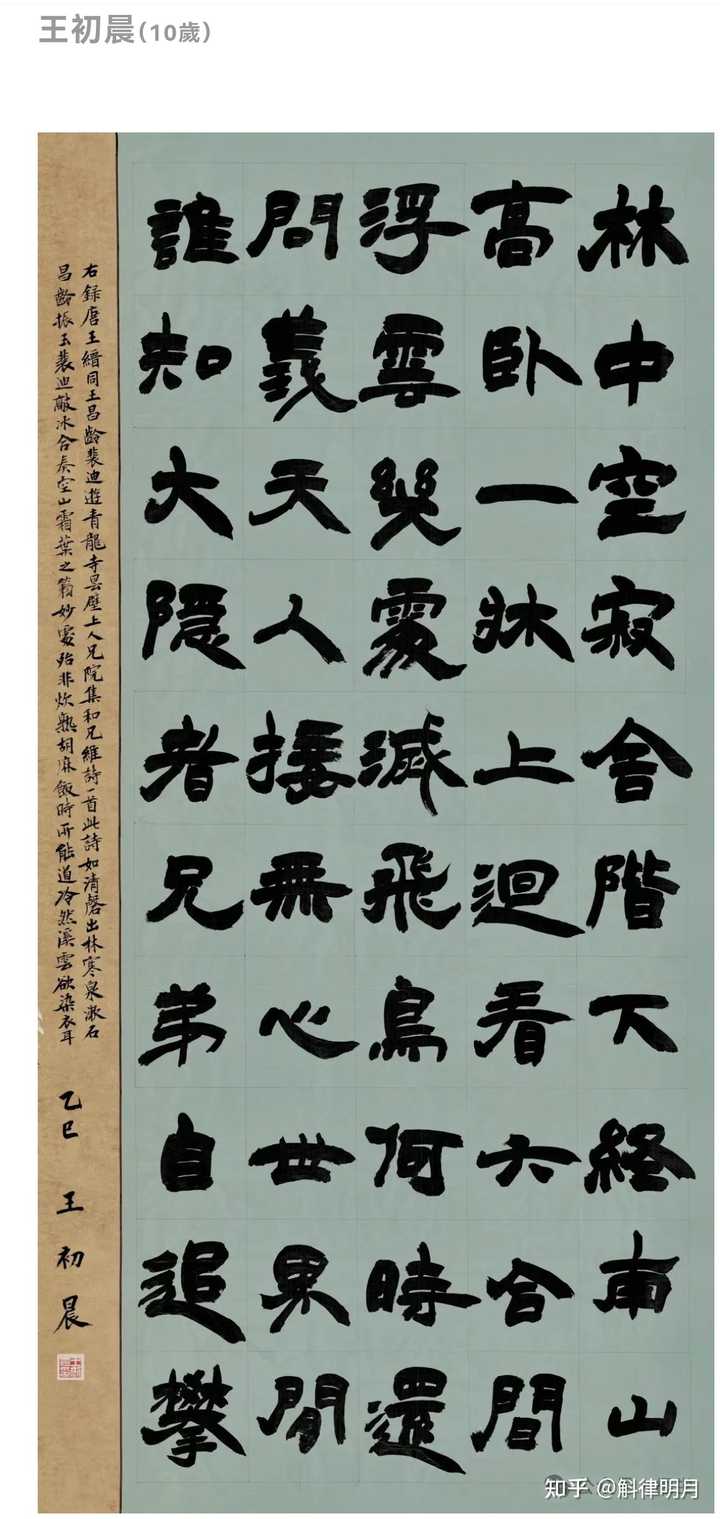 王初晨(10歲)
林中空寂舍階下經南山
高卧一牀上迴看六合間
浮雲幾處滅飛鳥何時還
問義天人接無心世界閒
誰知大隱者兄弟自追攀
右錄唐王縉同王昌齡裴迪遊青龍寺曇壁上人兄院集和兄維詩一首此詩如清磬出林寒泉漱石
昌齡振玉裴迪敲冰合奏空山霜葉之籟妙處殆非炊熟胡麻飯時所能道冷然溪雲欲染衣耳 乙巳 王初晨
知乎 @斛律明月